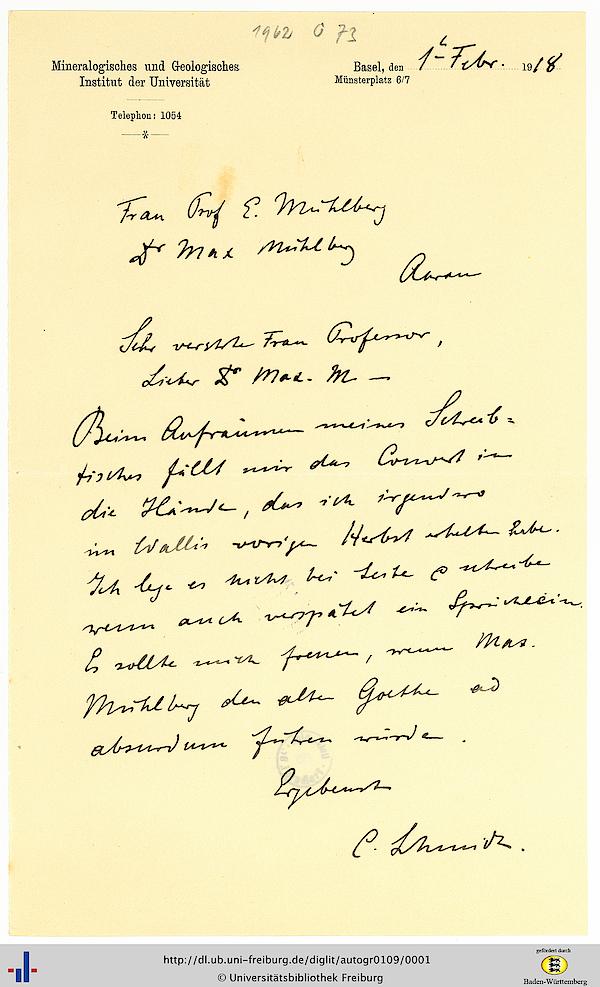 1962 G 73
Mineralogisches und Geologisches
Institut der Universität
Telephon: 1054
Basel, den 1t Febr. 1918
Münsterplatz 6/7
Frau Prof E. Mühlberg
Dr Max Mühlberg
Aarau
Sehr verehrte Frau Professor,
Lieber Dr Max. M. —
Beim Aufräumen meines Schreib=
tisches fällt mir das Couvert in
die Hände, das ich irgendwo
im Wallis vorigen Herbst erhalten habe.
Ich lege es nicht bei Seite & schreibe
wenn auch verspätet ein Sprüchlein.
Es sollte mich freuen, wenn Max.
Mühlberg den alten Goethe ad
absurdum führen würde.
Ergebenst
C. Schmidt.
http://dl.ub.uni-freiburg.de/diglit/autogr0109/0001
© Universitätsbibliothek Freiburg
gefördert durch
Baden-Württemberg